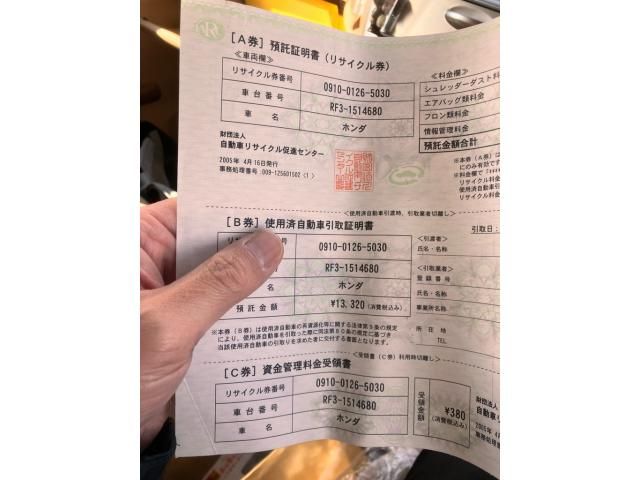 [A券] 預託証明書(リサイクル券)
<車両欄>
リサイクル券番号 0910-0126-5030
車台番号 RF3-1514680
車名 ホンダ
<料金欄>
シュレッダーダスト料
エアバッグ類料金
フロン類料金
情報管理料金
預託金額合計
財団法人
自動車リサイクル促進センター
2005年 4月16日発行
事務処理番号:009-1Z5601502(1)
※本券(A券)は
にのみ有効です
※料金欄で
リサイクル料金
使用済自動車
リサイクル料
<使用済自動車引渡時、引取業者切離し>
[B券] 使用済自動車引取証明書
引取日:
リサイ 番号 0910-0126-5030
RF3-1514680
名 ホンダ
預託金額 ¥13,320(消費税込み)
<引渡者>
氏名・名称
<引取業者>
登録番号
氏名・名称
事業所名称
所在地
TEL
※本券(B券)は使用済自動車の再資源化等に関する法律第5条の規定
により、使用済自動車を引取った際に同法第80条の規定に基づき
当該使用済自動車の引取りを求めた者に交付する書面となります。
<受領書(C券)利用時切離し>
[C券] 資金管理料金受領書
リサイクル券番号 0910-0126-5030
車台番号 RF3-1514680
車名 ホンダ
受領金額
¥380
(消費税込み)
財団法人
自動車リ
2005年 4月
事務処理番